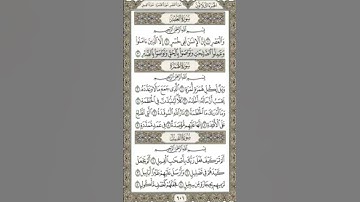 الجزء الثلاثون
سُورَةُ العَصْرِ
بِسْمِ ٱللَّهِ ٱلرَّحْمَٰنِ ٱلرَّحِيمِ
وَٱلْعَصْرِ ١ إِنَّ ٱلْإِنسَٰنَ لَفِى خُسْرٍ ٢ إِلَّا ٱلَّذِينَ ءَامَنُوا۟
وَعَمِلُوا۟ ٱلصَّٰلِحَٰتِ وَتَوَاصَوْا۟ بِٱلْحَقِّ وَتَوَاصَوْا۟ بِٱلصَّبْرِ ٣
سُورَةُ الهُمَزَةِ
بِسْمِ ٱللَّهِ ٱلرَّحْمَٰنِ ٱلرَّحِيمِ
وَيْلٌ لِّكُلِّ هُمَزَةٍ لُّمَزَةٍ ١ ٱلَّذِى جَمَعَ مَالًا وَعَدَّدَهُۥ ٢
يَحْسَبُ أَنَّ مَالَهُۥٓ أَخْلَدَهُۥ ٣ كَلَّا لَيُنۢبَذَنَّ فِى ٱلْحُطَمَةِ ٤
وَمَآ أَدْرَىٰكَ مَا ٱلْحُطَمَةُ ٥ نَارُ ٱللَّهِ ٱلْمُوقَدَةُ ٦ ٱلَّتِى تَطَّلِعُ
عَلَى ٱلْأَفْـِٔدَةِ ٧ إِنَّهَا عَلَيْهِم مُّؤْصَدَةٌ ٨ فِى عَمَدٍ مُّمَدَّدَةٍۭ ٩
سُورَةُ الفِيلِ
بِسْمِ ٱللَّهِ ٱلرَّحْمَٰنِ ٱلرَّحِيمِ
أَلَمْ تَرَ كَيْفَ فَعَلَ رَبُّكَ بِأَصْحَٰبِ ٱلْفِيلِ ١ أَلَمْ يَجْعَلْ
كَيْدَهُمْ فِى تَضْلِيلٍ ٢ وَأَرْسَلَ عَلَيْهِمْ طَيْرًا أَبَابِيلَ ٣
تَرْمِيهِم بِحِجَارَةٍ مِّن سِجِّيلٍ ٤ فَجَعَلَهُمْ كَعَصْفٍ مَّأْكُولٍۭ ٥
٦٠١